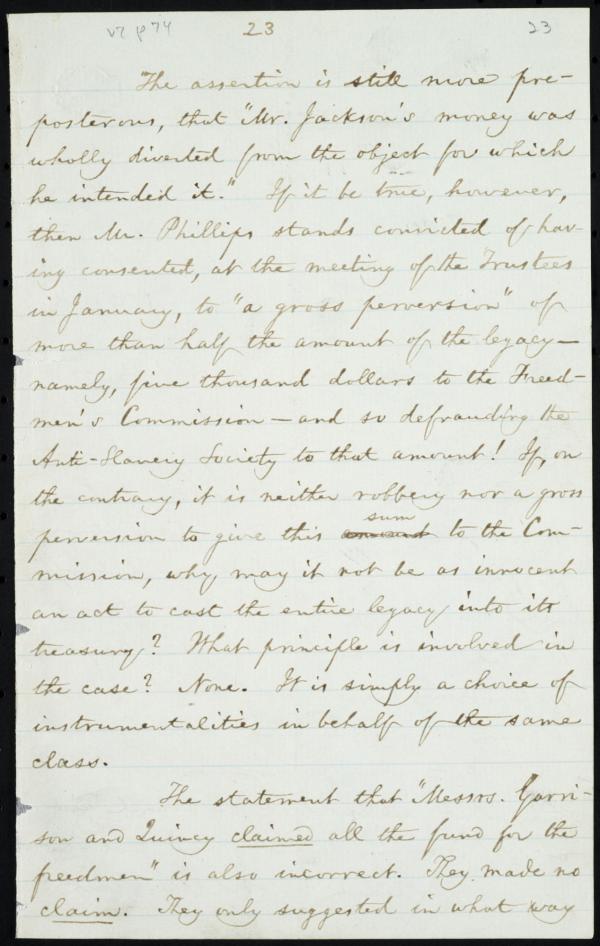 v7 p74 23 23
The assertion is still more pre-
posterous, that "Mr. Jackson's money was
wholly diverted from the object for which
he intended it." If it be true, however,
then Mr. Phillips stands convicted of hav-
ing consented, at the meeting of the Trustees
in January, to "a gross perversion" of
more than half the amount of the legacy—
namely, five thousand dollars to the Freed-
men's Commission—and so defrauding the
Anti-Slavery Society to that amount! If, on
the contrary, it is neither robbery nor a gross
sum
perversion to give this amount to the Com-
mission, why may it not be as innocent
an act to cast the entire legacy into its
treasury? What principle is involved in
the case? None. It is simply a choice of
instrumentalities in behalf of the same
class.
The statement that "Messrs. Garri-
son and Quincy claimed all the fund for the
freedmen" is also incorrect. They made no
claim. They only suggested in what way